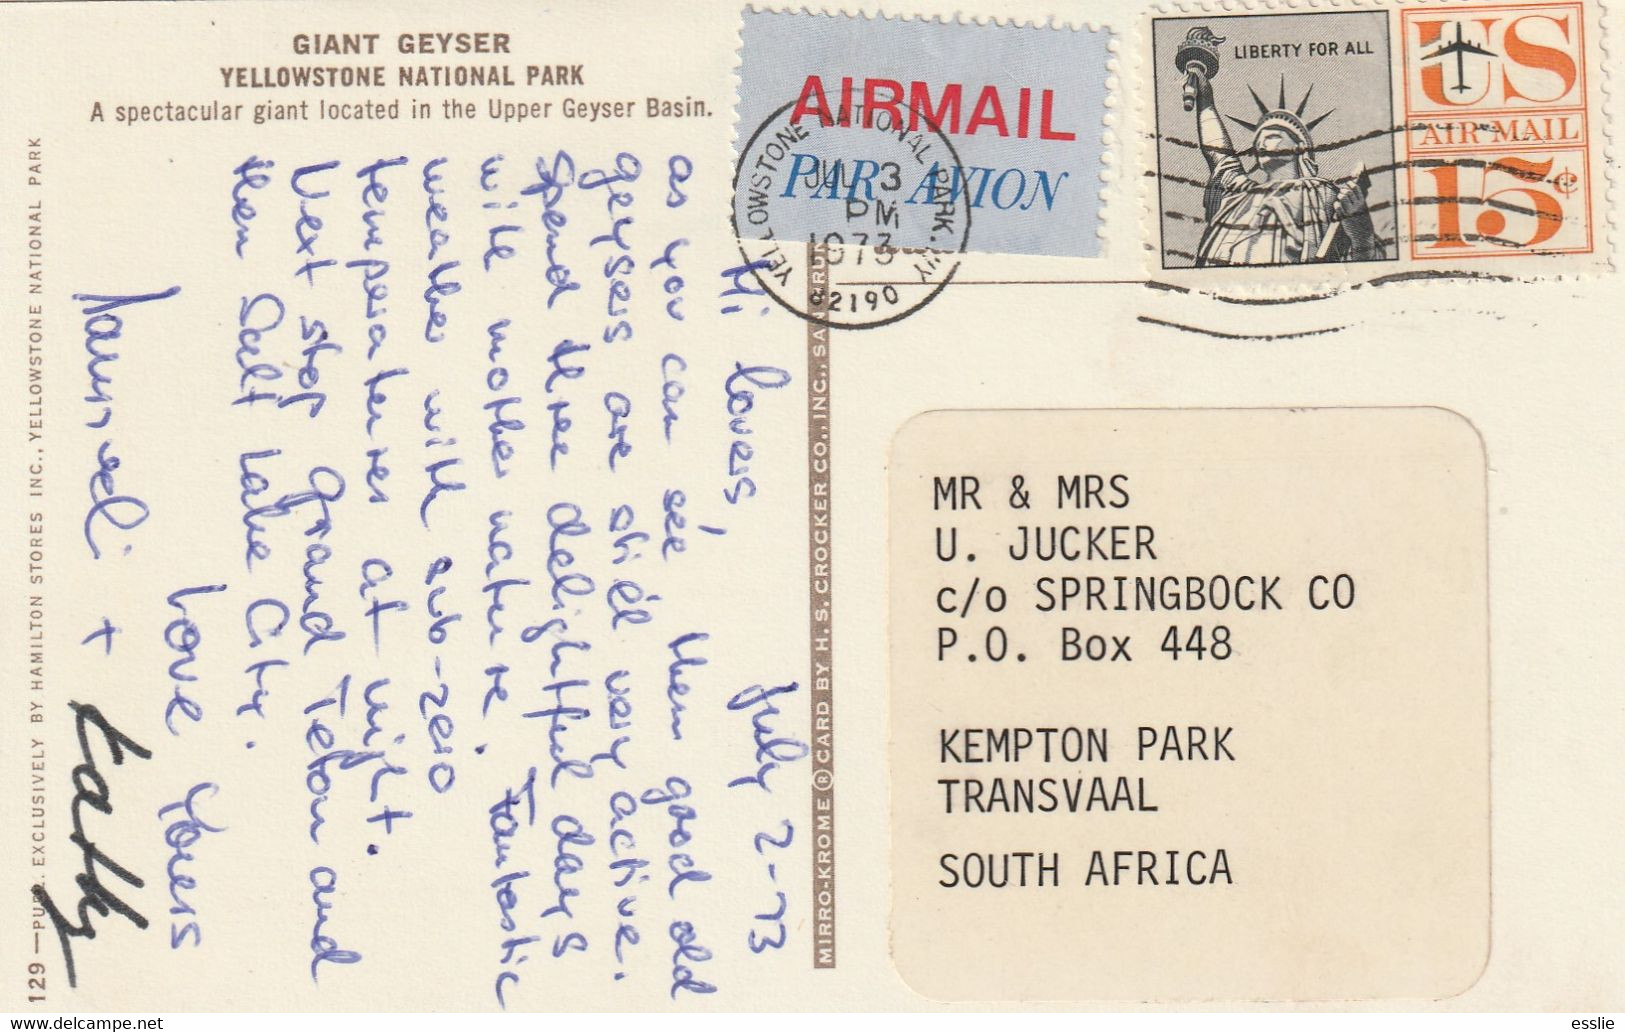 GIANT GEYSER
YELLOWSTONE NATIONAL PARK
A spectacular giant located in the Upper Geyser Basin.
AIRMAIL
PAR AVION
YELLOWSTONE NATIONAL PARK. WY
JUL 3
PM
1973
82190
LIBERTY FOR ALL
US
AIR MAIL
15¢
July 2-73
Hi lovers,
as you can see them good old
geysers are still very active.
Spend three delightful days
with mother nature. Fantastic
weather with sub-zero
temperatures at night.
Next stop Grand Teton and
then Salt Lake City.
Love Yours
+ Kathy
129—PUB. EXCLUSIVELY BY HAMILTON STORES INC., YELLOWSTONE NATIONAL PARK
MIRRO-KROME ® CARD BY H. S. CROCKER CO., INC., SAN BRUN
MR & MRS
U. JUCKER
c/o SPRINGBOCK CO
P.O. Box 448
KEMPTON PARK
TRANSVAAL
SOUTH AFRICA
esslie